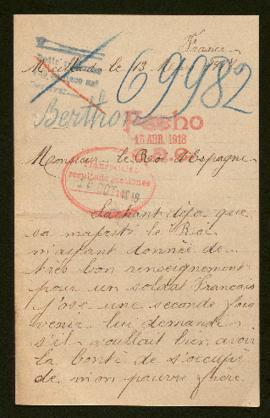 France
le 13
69982
Berthon
Fecho
15 ABR. 1918
Monsieur le Roi d'Espagne
Sachant déja que
sa majesté le Roi
m'ayant donnée de
très bon renseignement
pour un soldat Francais
j'ose une seconde fois
venir lui demander
s'il voullait bien avoir
la bonté de s'occupé
de mon pauvre frère